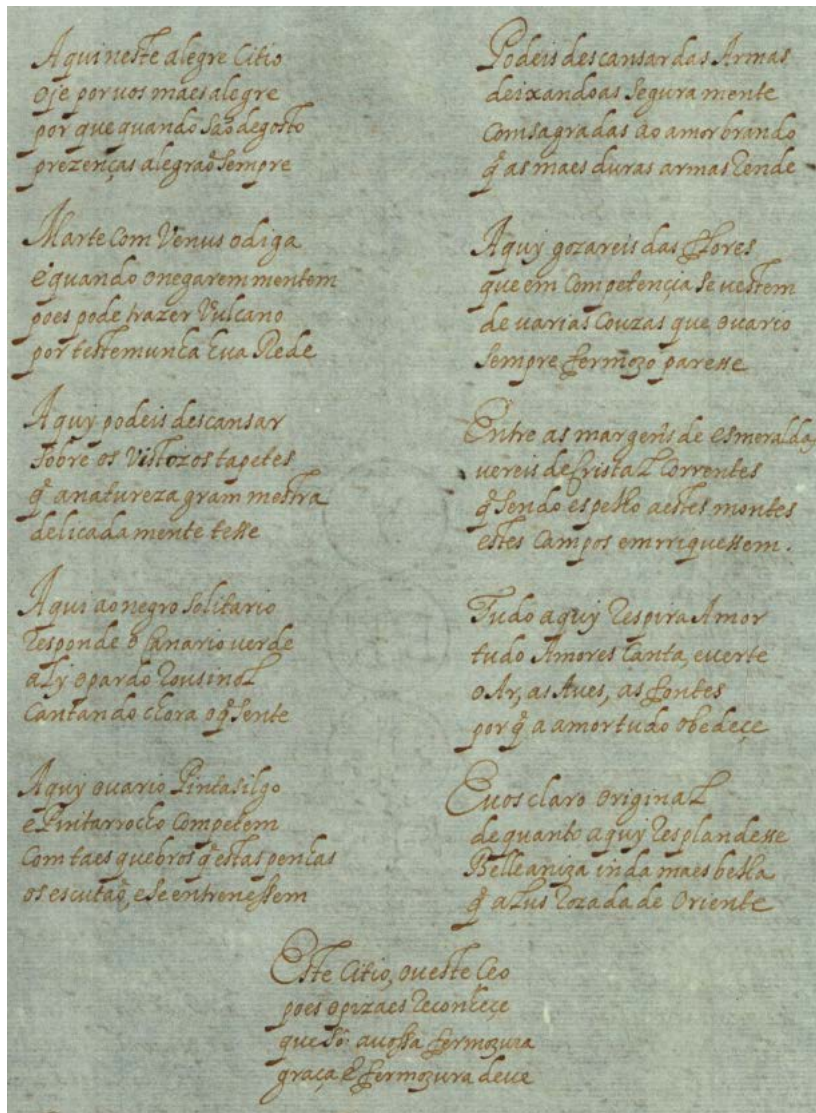 Aqui neste alegre Citio
oje por uos maes alegre
por que quando são de gosto
prezenças alegraõ sempre
Marte Com Venus o diga
e quando o negarem mentem
poes pode trazer Vulcano
por testemunha hua Rede
Aquy podeis descansar
sobre os vistozos tapetes
q̃ a natureza gram mestra
delicada mente tesse
Aqui ao negro solitario
responde o Canario uerde
aly o pardo Rousinol
Cantando chora o q̃ sente
Aquy o uario Pintasilgo
e Pintarrocho Competem
Com taes quebros q̃ estas penhas
os escutaõ, e se entrenessem
Podeis descansar das Armas
deixandoas segura mente
Comsagradas ao amor brando
q̃ as maes duras armas Rende
Aquy gozareis das flores
que em Competençia se uestem
de uarias Couzas que o uario
sempre fermozo paresse
Entre as margeñs de esmeraldas
uereis de Cristal Correntes
q̃ sendo espelho a estes montes
estes Campos emrriquessem.
Tudo aquy Respira Amor
tudo Amores Canta, e uerte
o Ar, as Aues, as fontes
por q̃ a amor tudo obedeçe
E uos claro original
de quanto aquy Resplandesse
Belleaniza inda maes bella
q̃ a Lus Rozada de Oriente
Este Citio, ou este Ceo
poes o pizaes Reconheçe
que só a uossa fermozura
graça e fermozura deue